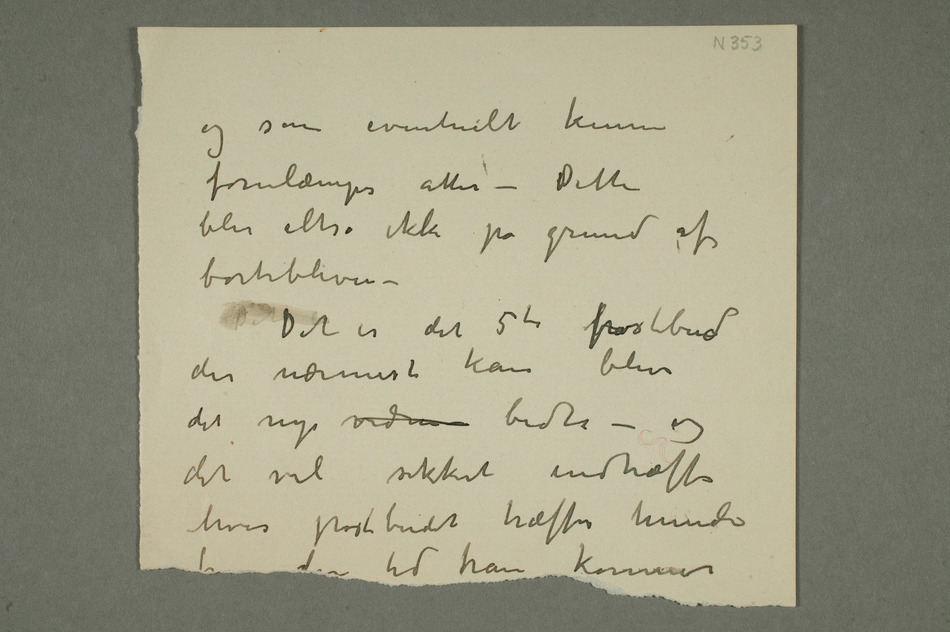 N 353
og som eventuelt kunne
forulæmpes atter – Dette
blev altso ikke po grund af
bortebliven –
Det er det 5te postbud
der nærmest kan bliv
det nye vidne bedte – og
det vil sikkert indtræffe
hvis postbudet træffes hunde
den tid han kommer